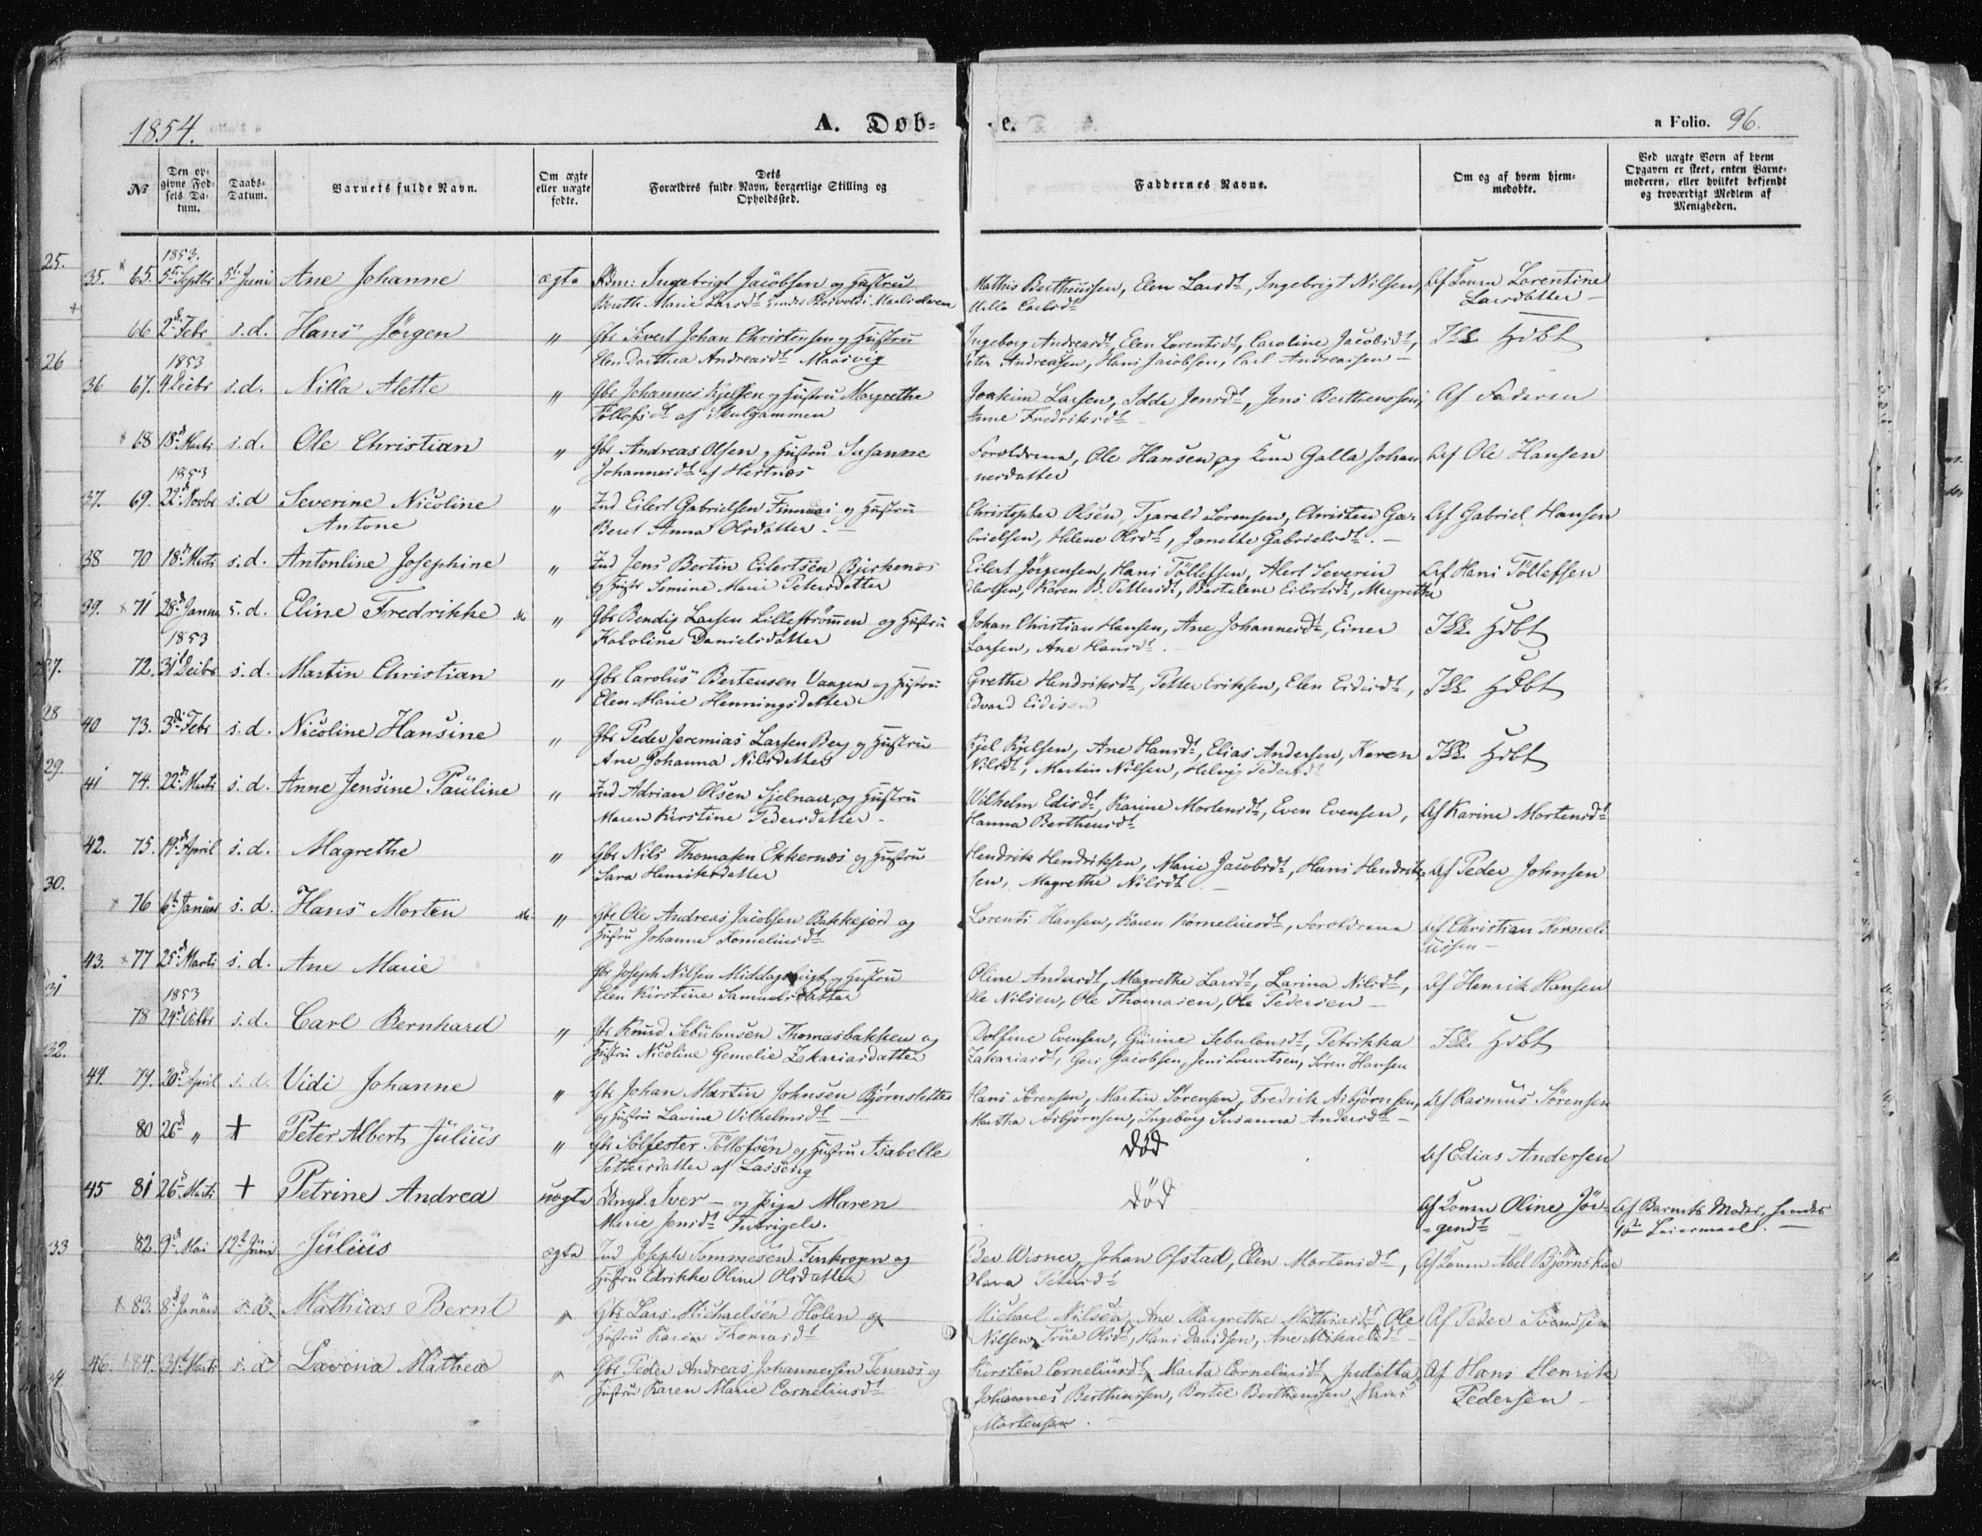 1854.
A. Døb-
e.
a Folio. 96.
No
Den op-
givne Fød-
sels Da-
tum.
Daabs-
Datum.
Barnets fulde Navn.
Om ægte
eller uægte
fødte.
Dets
Forældres fulde Navn, borgerlige Stilling og
Opholdssted.
Faddernes Navne.
Om og af hvem hjem-
medøbte.
Ved uægte Børn af hvem
Opgaven er skeet, enten Barne-
moderen, eller hvilket bekjendt
og troværdigt Medlem af
Menigheden.
1853.
25.
35. 65. 5te Septbr 5te Juni Ane Johanne ægte Ingebrigt Jacobsen og Hustru
Mathis Bertheussen, Elen Larsdt, Ingebrigt Nilsen, Af Konen Lorentine
Larsdatter
66 2de Febr s.d. Hans Jörgen " Gbr Sivert Johan Christensen og Hustru
Elen Dorthea Andreasdt Maasvig
Ingeborg Andreasdt, Elen Lorentsdt, Caroline Jacobsdt, Ikke Hdbt
Peter Andreassen, Hans Jacobsen, Carl Andreassen
1853
26
36 67. s.d. Nilla Alette " Gbr Johannes Kjelsen og Hustru Margrethe
Tollefsdt af Skulgammen
Joakim Larsen, Idde Jensdt, Jens Berthenssen, Af Faderen
Anne Fredriksdt
68 18de Marts s.d. Ole Christian " Gbr Andreas Olsen og Hustru Susanne
Johannesdt af Hertnæs
Forældrene, Ole Hansen og Kone Galla Johan Af Ole Hansen
nesdatter
1853
37. 69. 22de Novbr s.d Severine Nicoline
Antone
" Ind Eilert Gabrielsen Finnæs og Hustru
Beret Anna Olsdatter.
Christopher Olsen, Tharald Sörensen, Christen Ga- Af Gabriel Hansen
brielsen, Helene Olsdt, Janethe Gabrielsdt.
38 70 18de Marts s.d. Antonline Josephine " Ind Jens Bertin Eilertsen Bjerkenæs
og Hustr Simine Marie Petersdatter
Eilert Jörgensen, Hans Tölleffsen, Alert Severin Af Hans Tölleffsen
Eilertsen, Karen B. Pettersdt, Bertelene Eilertsdt, Margrethe
39. 71 28de Januar s.d. Eline Fredrikke " Gbr Bendig Larsen Lillestrømmen og Hustru
Karoline Danielsdatter
Johan Christian Hansen, Ane Johannesdt, Einer Ikke Hdbt
Larsen, Ane Hansdt.
1853
27.
72. 31te Decbr s.d. Martin Christian " Gbr Carolus Berteusen Vaagen og Hustru
Elen Marie Henningsdatter
Grethe Hendriksdt, Petter Eriksen, Elen Eidisdt, Ikke Hdbt
Edvard Eidisen
28
40 73. 3de Febr s.d. Nicoline Hansine " Gbr Peder Jeremias Larsen Berg og Hustru
Ane Johanna Nilsdatter
Kjel Kjelsen, Ane Hansdt, Elias Andersen, Karen Ikke Hdbt
Nilsdt, Martin Nilsen, Helvig Pedersdt
29.
41 74. 22de Marts s.d. Anne Jensine Pauline " Ind Adrian Olsen Sjelnan og Hustru
Maren Kirstine Pedersdatter.
Wilhelm Edisdt, Karine Mortensdt, Even Evensen, Af Karine Mortensdt
Hanna Berthensdt
42. 75. 19de April s.d. Magrethe " Gbr Nils Thomasen Ekkernæs og Hustru
Sara Henriksdatter
Hendrik Hendriksen, Marie Jacobsdt, Hans Hendrik- Af Peder Johnsen
sen, Magrethe Nilsdt
30.
76 6te Januar s.d. Hans Morten " Gbr Ole Andreas Jacobsen Bakkejord og
Hustru Johanne Kornelinsdt
Lorents Hansen, Karen Korneliusdt, Forældrene Af Christian Korneli
ussen
43. 77 25de Marts s.d. Ane Marie Gbr Joseph Nilsen Middagsbugt og Hustru
Elen Kirstine Samuelsdatter
Oline Andersdt, Magrethe Larsdt, Larina Nilsdt, Af Henrik Hansen
Ole Nilsen, Ole Thomasen, Ole Pedersen
1853
31
78 24de s.d. Carl Bernhard " Gbr Knud Sebulonsen Thomasbakken og
Hustru Nicoline Gemelie Zakariasdatter
Dolfine Evensen, Gurine Sebulonsdt, Petrikka Ikke Hdbt
Zakariasdt, Geri Jacobsen, Jens Lorentsen, Sören Hansen
32.
44. 79. 20de April s.d. Vidi Johanne " Gbr Johan Martin Johnsen Bjørnslette
og Hustru Lavine Vilhelmsdt
Hans Sörensen, Martin Sörensen, Fredrik Asbjörnsen, Af Rasmus Sörensen
Martha Asbjörnsen, Ingeborg Susanna Andersdt
80 26de " + Peter Albert Julius " Gbr Sölfester Tölloföen og Hustru Isabelle
Pettersdatter af Lasseng
død
Af Edias Andersen
45 81 26de Marts + Petrine Andrea uægte Ungk. Iver — og Pige Maren
Marie Jensdt
død
Af Konen Oline Jör-
gensdt
Af Barnets Moder, hendes
1ste Leiermaal.
33
82. 9de Mai 12te Juni Julius ægte Ind Joseph Tommesen Finkrogen og
Hustru Edrikke Oline Olsdatter
Peder Wisner, Johan Ofstad, Elen Mortensdt, Af Konen Abel Bjørnskar
Olava Petersdt
83. 8de Januar s.d. Mathias Bernt " Gbr Lars Michaelsen Holen og
Hustru Karen Thomasdt
Michael Nilsen, Ane Margrethe Mathiasdt, Ole Af Peder Svendsen
Nilsen, True Olsdt, Hans Davidsen, Ane Mikaelsdt
46. 84. 31te Marts s.d Lavina Mathea " Gbr Peder Andreas Johannessen Tennæs og
Hustru Karen Marie Corneliusdt
Kirsten Corneliusdt, Marta Corneliusdt, Juditta Af Hans Henrik
Johannes Bertheussen, Bertel Bertheussen, Hans Pedersen
Mortensen.